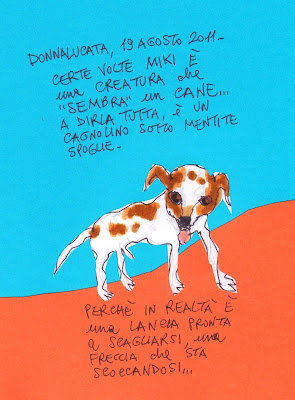 DONNALUCATA, 19 AGOSTO 2011-
CERTE VOLTE MIKI È
una CREATURA che
"SEMBRA" un CANE...
A DIRLA TUTTA, è UN
CAGNOLINO SOTTO MENTITE
SPOGLIE-
PERCHÈ IN REALTÀ È
una LANCIA PRONTA
a SCAGLIARSI, una
FRECCIA che STA
SCOCCANDOSI...